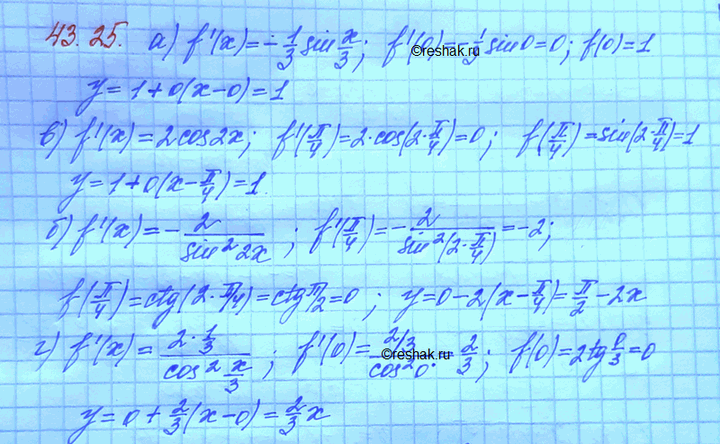 43.25. а) f'(x)=-1/3 sin x/3; f'(0)=-1/3 sin0=0; f(0)=1
©reshak.ru
y=1+0(x-0)=1
в) f'(x)=2cos2x; f'(π/4)=2·cos(2·π/4)=0; f(π/4)=sin(2·π/4)=1
y=1+0(x-π/4)=1.
б) f'(x)=-2/sin²2x; f'(π/4)=-2/sin²(2·π/4)=-2;
f(π/4)=ctg(2·π/4)=ctgπ/2=0; y=0-2(x-π/4)=π/2-2x
г) f'(x)=2·1/3/cos² x/3; f'(0)=2/3/cos²0=2/3; f(0)=2tg0/3=0
©reshak.ru
y=0+2/3(x-0)=2/3x